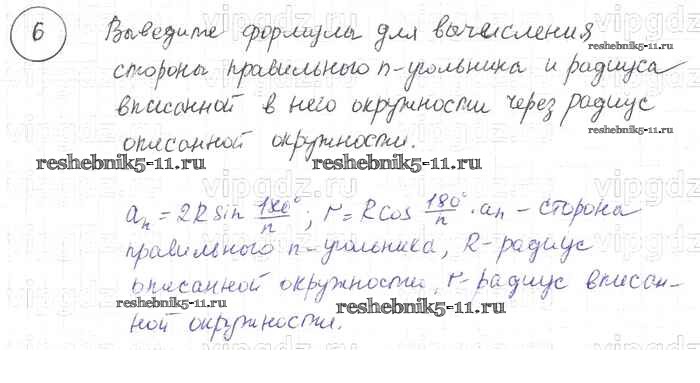 6 Выведите формулы для вычисления
стороны правильного n-угольника и радиуса
вписанной в него окружности через радиус
описанной окружности.
aₙ = 2R sin 180°/n ; r = R cos 180°/n · aₙ – сторона
правильного n-угольника, R – радиус
описанной окружности, r – радиус вписан-
ной окружности.
reshebnik5-11.ru
reshebnik5-11.ru
reshebnik5-11.ru
reshebnik5-11.ru
reshebnik5-11.ru
reshebnik5-11.ru
vipgdz